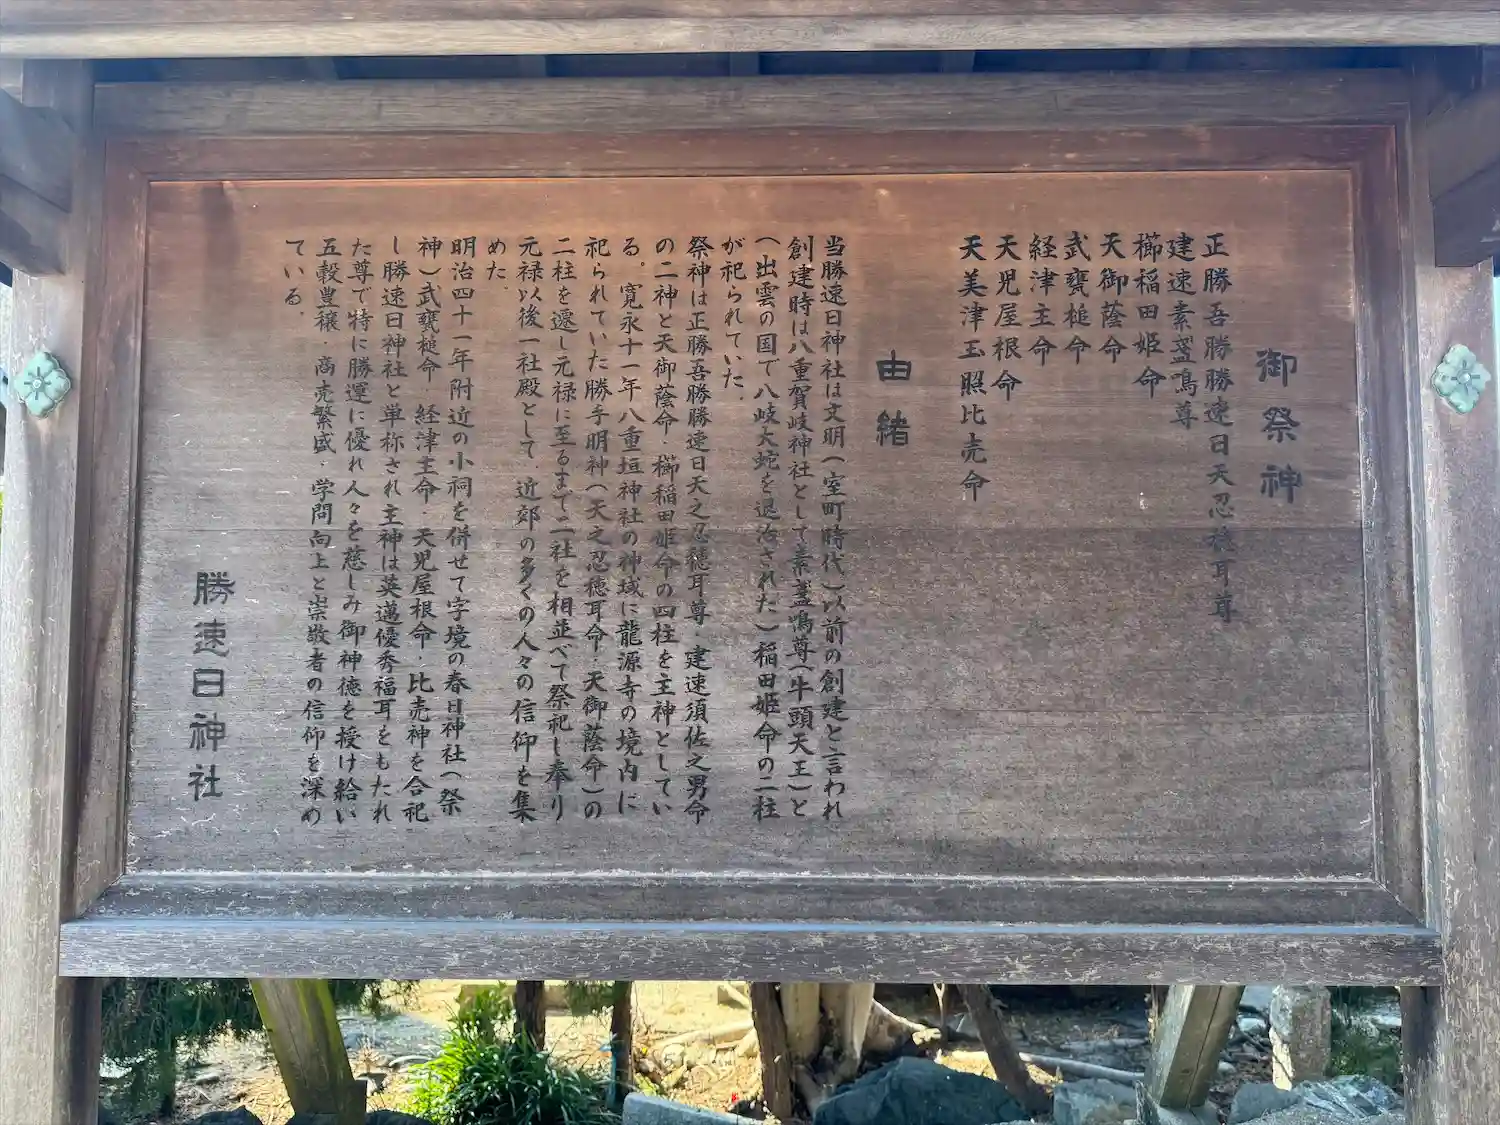 御祭神
正勝吾勝勝速日天忍穂耳尊
建速素盞鳴尊
櫛稲田姫命
天御蔭命
武甕槌命
経津主命
天児屋根命
天美津玉照比売命
由緒
当勝速日神社は文明(室町時代)以前の創建と言われ
創建時は八重賀岐神社として素盞鳴尊(牛頭天王)と
(出雲の国で八岐大蛇を退治された)稲田姫命の二柱
が祀られていた.
祭神は正勝吾勝勝速日天之忍穂耳尊.建速須佐之男命
の二神と天御蔭命.櫛稲田姫命の四柱を主神としてい
る。寛永十一年八重垣神社の神域に龍源寺の境内に
祀られていた勝手明神(天之忍穂耳命.天御蔭命)の
二柱を遷し元禄に至るまで二社を相並べて祭祀し奉り
元禄以後一社殿として.近郊の多くの人々の信仰を集
めた.
明治四十一年附近の小祠を併せて字境の春日神社(祭
神)武甕槌命 経津主命 天児屋根命.比売神を合祀
し勝速日神社と単称され主神は英邁優秀福耳をもたれ
た尊で特に勝運に優れ人々を慈しみ御神徳を授け給い
五穀豊穣.商売繁盛.学問向上と崇敬者の信仰を深め
ている.
勝速日神社